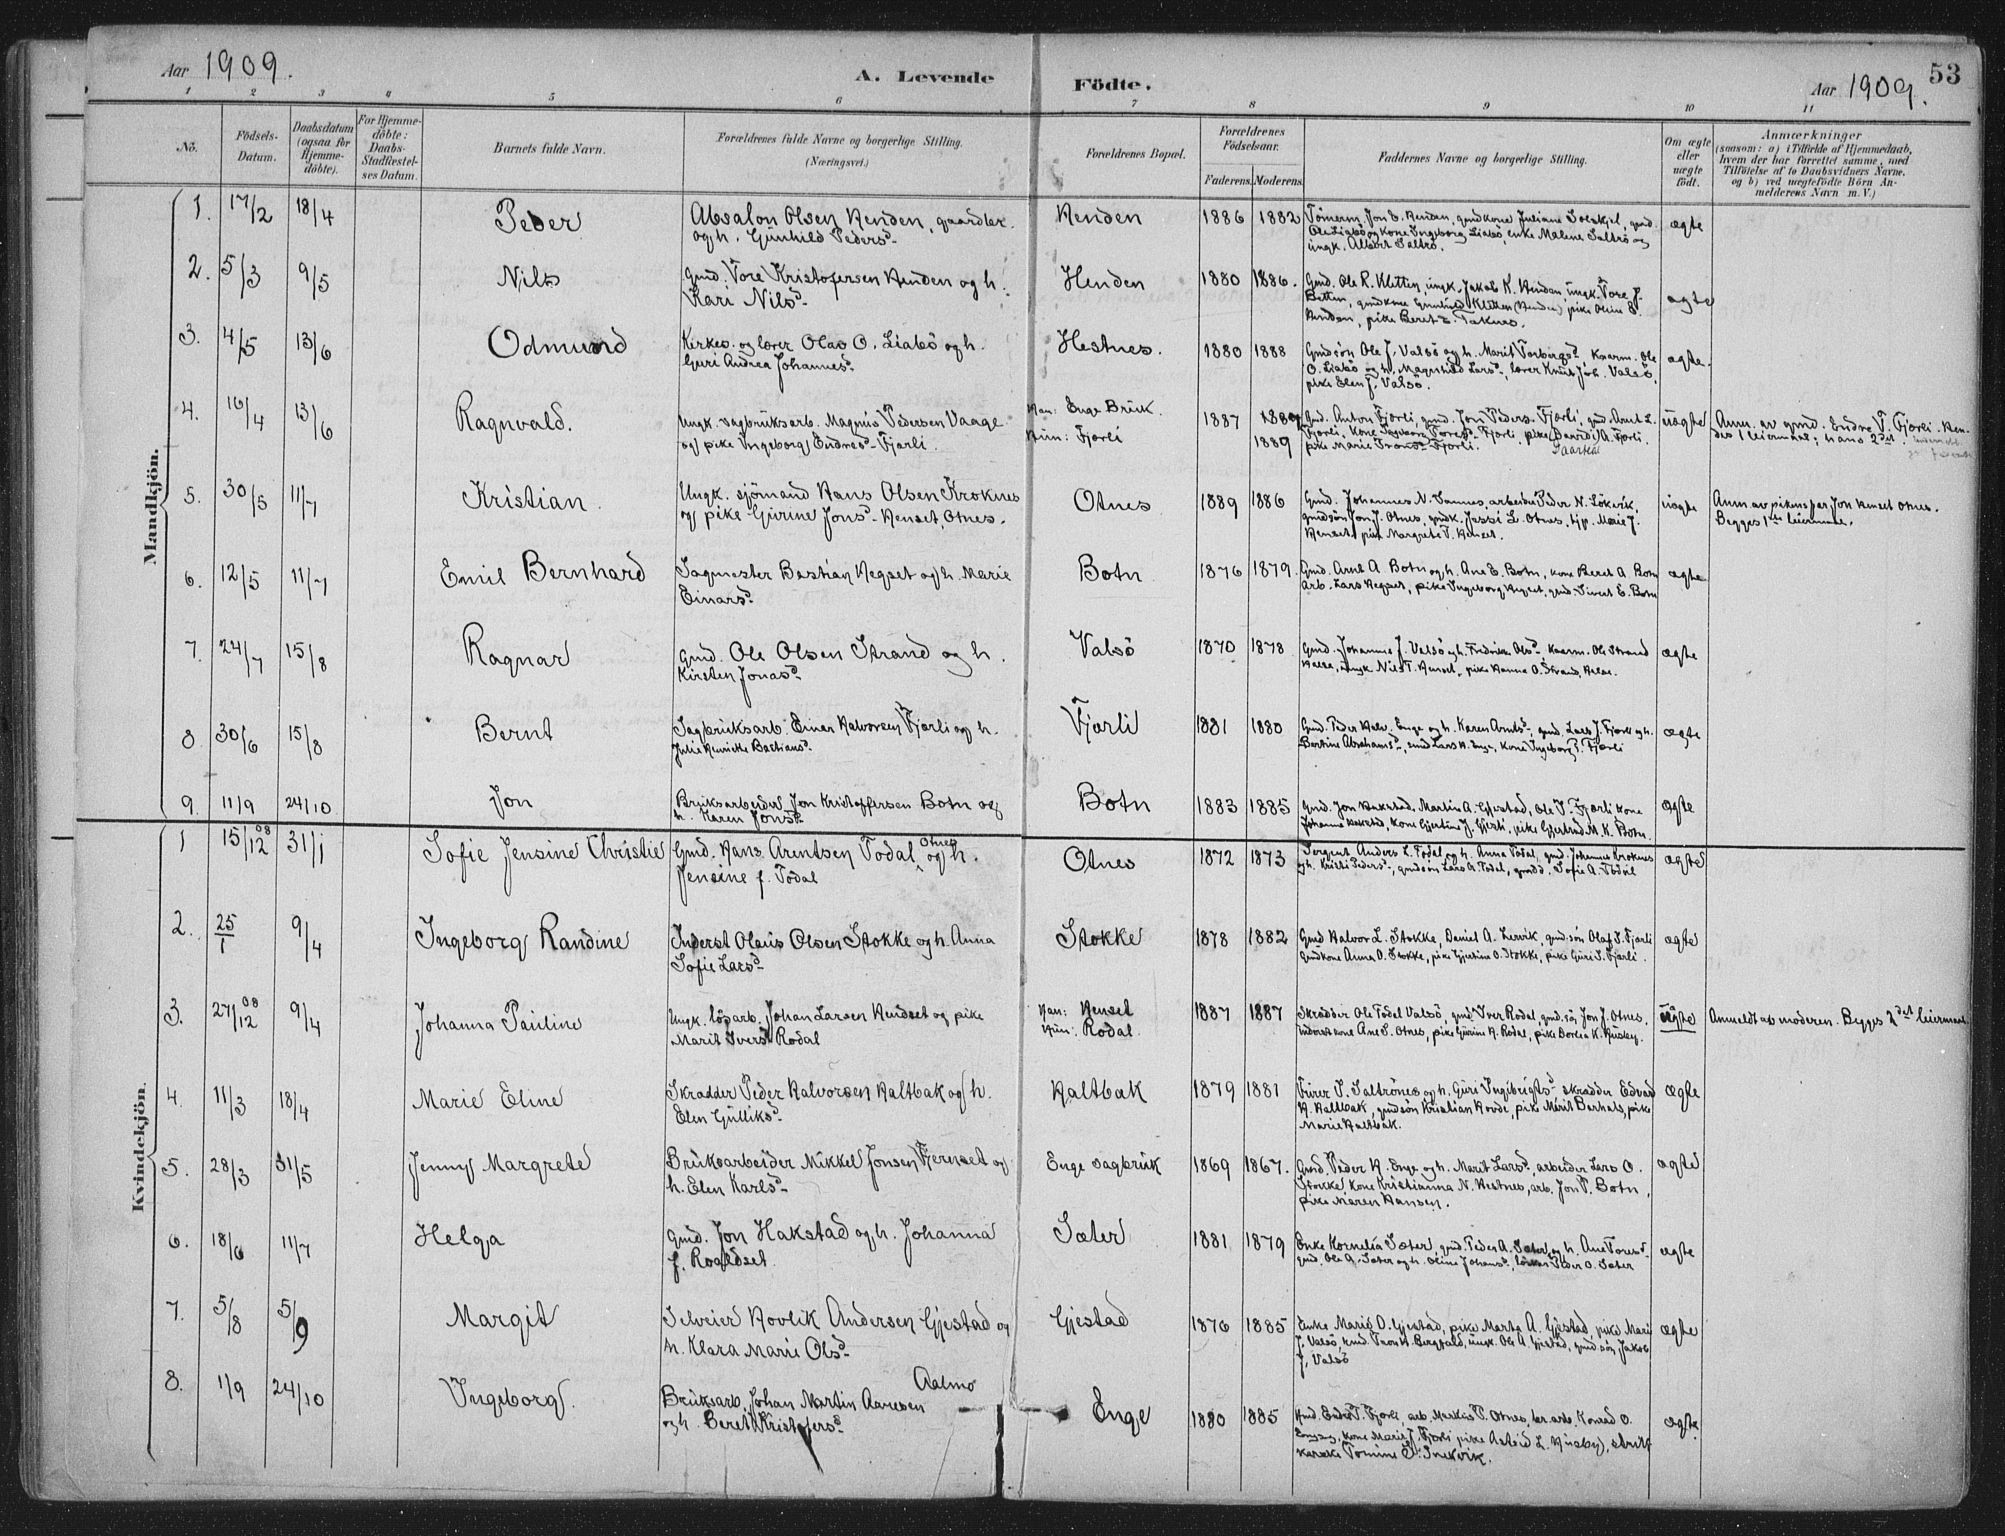 Aar 1909.
A. Levende
Födte.
Aar 1909.
53
1 2 3 4 5 6 7 8 9 10 11
Nö.
Födsels-Datum.
Daabsdatum (ogsaa for Hjemmedöbte).
For Hjemmedöbte: Daabs-Stadfæstelses Datum.
Barnets fulde Navn.
Forældrenes fulde Navne og borgerlige Stilling. (Næringsvei.)
Forældrenes Bopæl.
Forældrenes Födselsaar.
Faderens. Moderens.
Faddernes Navne og borgerlige Stilling.
Om ægte eller uægte födt.
Anmærkninger
(saasom: a) i Tilfælde af Hjemmedaab, hvem der har forrettet samme, med Tilföielse af to Daabsvidners Navne, og b) ved uægtefödte Börn Anmelderens Navn m.V.)
Mandkjön.
1. 17/2 18/4 Peder
Absalon Olsen Henden, gaardbr.
og h. Gunhild Pedersd.
Henden 1886 1882
Tömerm. Jon E. Henden, gmdkone Juliane Solskjel, gmd.
Ole Liabö og kone Ingeborg Liabö, enke Malene Saltrö og
ungk. Albert Saltrö.
ægte
2. 5/3 9/5 Nils
Gmd. Tore Kristofersen Henden og h.
Kari Nilsd.
Henden 1880 1886.
Gmd. Ole R. Kletten, ungk. Jakob K. Henden, ungk. Tore J.
Betten, gmdkone Gunhild Kletten (Henden) pike Oline
Henden, pike Beret E. Taknes.
ægte
3. 4/5 13/6 Odmund
Kirkes. og lærer Olas O. Liabö og h.
Guri Andrea Johannesd.
Hestnes. 1880 1888
Gmdsön Ole J. Valsö og h. Marit Torbergsd, Kaarm. Ole
O. Liabö og h. Magnhild Larsd, lærer Knut Joh. Valsö,
pike Elen J. Valsö.
ægte.
4. 16/4 13/6 Ragnvald.
Ungk. sagbruksarb. Magnus Pedersen Vaage
og pike Ingeborg Endresd. Fjærli.
Han: Enge Bruk.
Hun: Fjærli
1887 1889
Gmd. Anton Fjærli, gmd. Jon Peders. Fjærli, gmd. Arnt L.
Fjærli, kone Ingeborg Toresd. Fjærli, pike A. Fjærli
pike Marie Fjærli.
uægte
Anm. av gmd. Endre T. Fjærli. Hendes 1 leiermaal; hans 2det.
5. 30/5 11/7 Kristian.
Ungk. sjömand Hans Olsen Kroknes
og pike Gurine Jonsd. Henset, Otnes.
Otnes 1889 1886
Gmd. Johannes N. Sannes, arbeider Peder N. Lökvik,
gmdsön Jon J. Otnes, gmdk. Jossi L. Otnes, tjp. Marie J.
Henset, pike Margrete T. Henset.
uægte
Anm. av pikens far Jon Henset Otnes.
Begges 1ste leiermaal.
6. 12/5 11/7 Emil Bernhard
Sagmester Bastian Hegset og h. Marie
Einarsd.
Botn 1876 1879.
Gmd. Arnt A Botn og h. Ane E. Botn, kone Beret A Botn
arb. Lars Hegset, pike Ingeborg Hegset, gmd. Sivert E. Botn
ægte
7. 24/7 15/8 Ragnar
Gmd. Ole Olsen Strand og h.
Kirsten Jonasd.
Valsö 1870 1878
Gmd. Johannes J. Valsö og h. Fredrikke Olsd, Kaarm. Ole Strand
Halse, ungk Nils T. Henset, pike Hanna O. Strand, Halse.
ægte
8 30/6 15/8 Bernt
Sagbruksarb. Einar Halvorsen Fjærli og h.
Julie Henrikke Bastiansd.
Fjærli 1881 1880
Gmd. Peder Halv. Enge og h. Karen Arntsd, gmd. Lars J. Fjærli og h.
Bertine Abrahamsd, gmd Lars H. Enge, kone Ingeborg T. Fjærli
ægte
9. 11/9 24/10 Jon
Bruksarbeider Jon Kristoffersen Botn og
h. Karen Jonsd.
Botn 1883 1885
Gmd. Jon Hakstad, Martin A. Gjestad, Ole T. Fjærli kone
Johanna Hakstad, kone Gjertine J. Fjærli, pike Gjertrud M. K. Botn.
ægte
Kvindekjön.
1 15/12 08 31/1 Sofie Jensine Christie
Gmd. Hans Arentsen Todal, Otnes og h.
Jensine f. Todal
Otnes 1872 1873
Sergent Anders L. Todal og h. Anna Todal, gmd. Johannes Kroknes
og h. Kristi Pedersd, gmdsön Lars A. Todal, gmdd. Sofie A. Todal
ægte
2. 25/1 9/4 Ingeborg Randine
Inderst Olaus Olsen Stokke og h. Anna
Sofie Larsd.
Stokke 1878 1882
Gmd Halvor L. Stokke, Daniel A. Lervik, gmd.sön Olaf J. Fjærli
gmdkone Anna O. Stokke, pike Gjertine O. Stokke, pike Guri J. Fjærli.
ægte
3. 27/12 08 9/4 Johanna Pauline
Ungk. lösarb. Johan Larsen Hendset og pike
Marit Iversd Rodal
Han: Henset
Hun: Rodal.
1887 1887
Skrädder Ole Todal Valsö, gmd Iver Rodal, gmd.sön Jon J. Otnes,
inderstkone Ane S. Otnes, pike Gurine H. Rodal, pike Dorlea K. Husby.
uägte
Anmeldt av moderen. Begges 2det leiermaal
4. 11/3 18/4 Marie Eline
Skrædder Peder Halvorsen Haltbak og h.
Elen Gulliksd.
Haltbak 1879 1881
Furer T. Saltrönes og h. Guri Ingebrigtsd. skrædder Edvard
H. Haltbak, gmdsön Kristian Hovde, pike Marit Berhals, pike
Marie Haltbak.
ægte
5. 28/3 31/5 Jenny Margrete
Bruksarbeider Mikkel Jonsen Fjerset og
h. Elen Karlsd.
Enge sagbruk 1869 1867.
Gmd. Peder H. Enge og h. Marit Larsd, arbeider Lars O.
Stokke kone Kristianna N. Hestnes, arb. Jon P. Botn,
pike Maren Hansen.
ægte
6. 18/6 11/7 Helga
Gmd. Jon Hakstad og h. Johanna
f. Roaldset.
Sæter 1881 1879
Enke Kornelia Sæter, gmd. Peder A. Sæter og h. Ane Toresd.
gmd. Ole A. Sæter og h. Oline Johansd, Peder O. Sæter
ægte
7. 5/8 5/9 Margit
Selveier Hovlik Andersen Gjestad og
h. Klara Marie Olsd.
Gjestad 1876 1885
Enke Marie O. Gjestad, pike Marta A. Gjestad, pike Marie
J. Valsö, gmd. Tront H. Bergfald, ungk. Ole A. Gjestad, gmd sön Jakob
J. Valsö
ægte
8. 1/9 24/10 Ingeborg.
Bruksarb. Johan Martin Aaresen Aalmo
og h. Beret Kristofersd.
Enge 1880 1885
Gmd. Endre T. Fjærli, arb. Markus P. Otnes, arb. Konrad O.
kone Marit J. Fjærli pike Astrid L. Husby,
Tomine S. Snekvik.
ægte